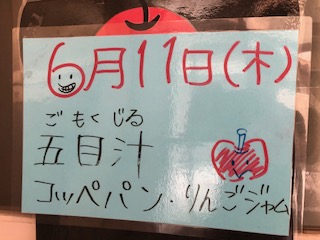 6月11日(木)
ごもくじる
五目汁
コッペパン・りんごジャム